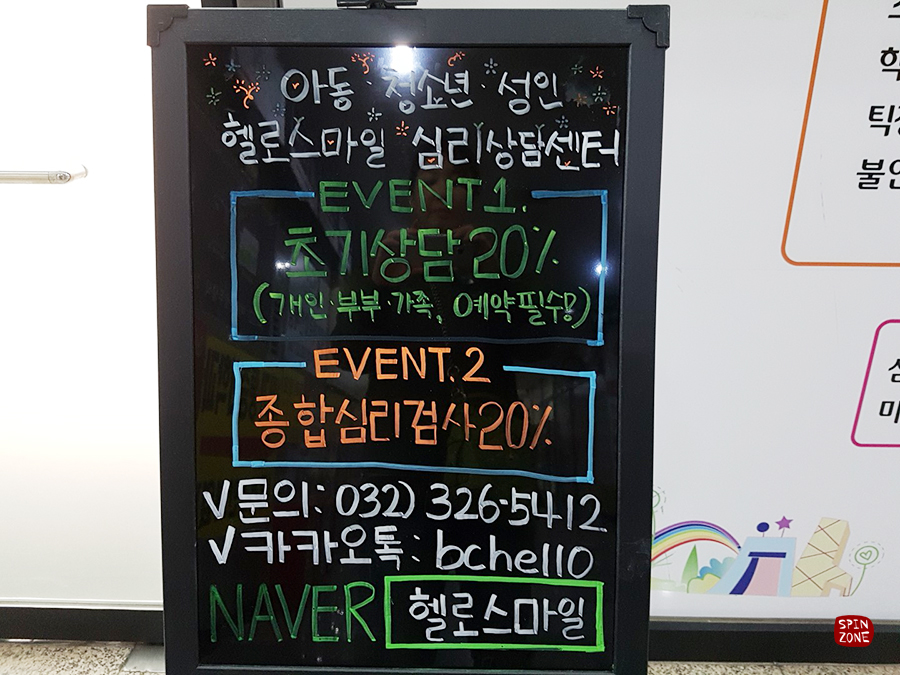 아동·청소년·성인
헬로스마일 심리상담센터
EVENT1.
초기상담 20%
(개인·부부·가족, 예약필수!)
EVENT.2
종합심리검사20%
V문의: 032) 326-5412
V카카오톡: bchello
NAVER 헬로스마일
틱
불안
SPIN
ZONE